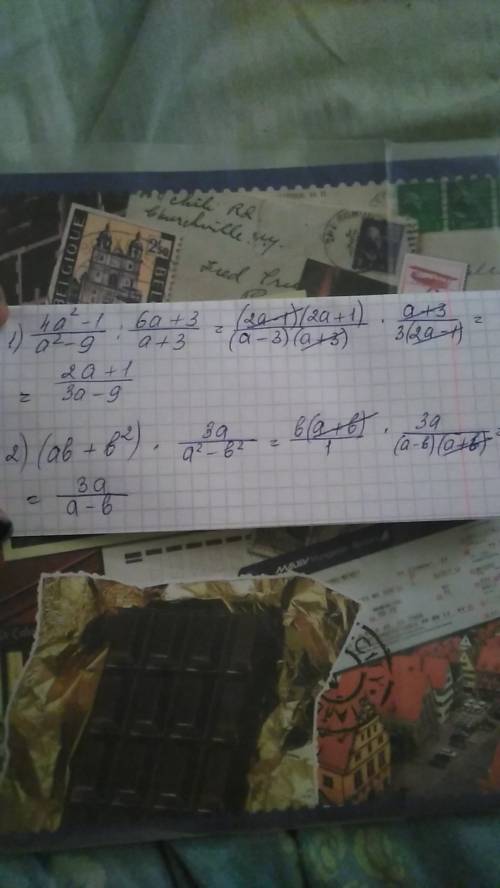 Chili RR
Churchville ny.
Fred
BELGIQUE
BEL
1) \frac{4a^2-1}{a^2-9} : \frac{6a+3}{a+3} = \frac{(2a-1)(2a+1)}{(a-3)(a+3)} \cdot \frac{a+3}{3(2a-1)} =
= \frac{2a+1}{3a-9}
2) (ab+b^2) \cdot \frac{3a}{a^2-b^2} = \frac{b(a+b)}{1} \cdot \frac{3a}{(a-b)(a+b)} =
= \frac{3a}{a-b}